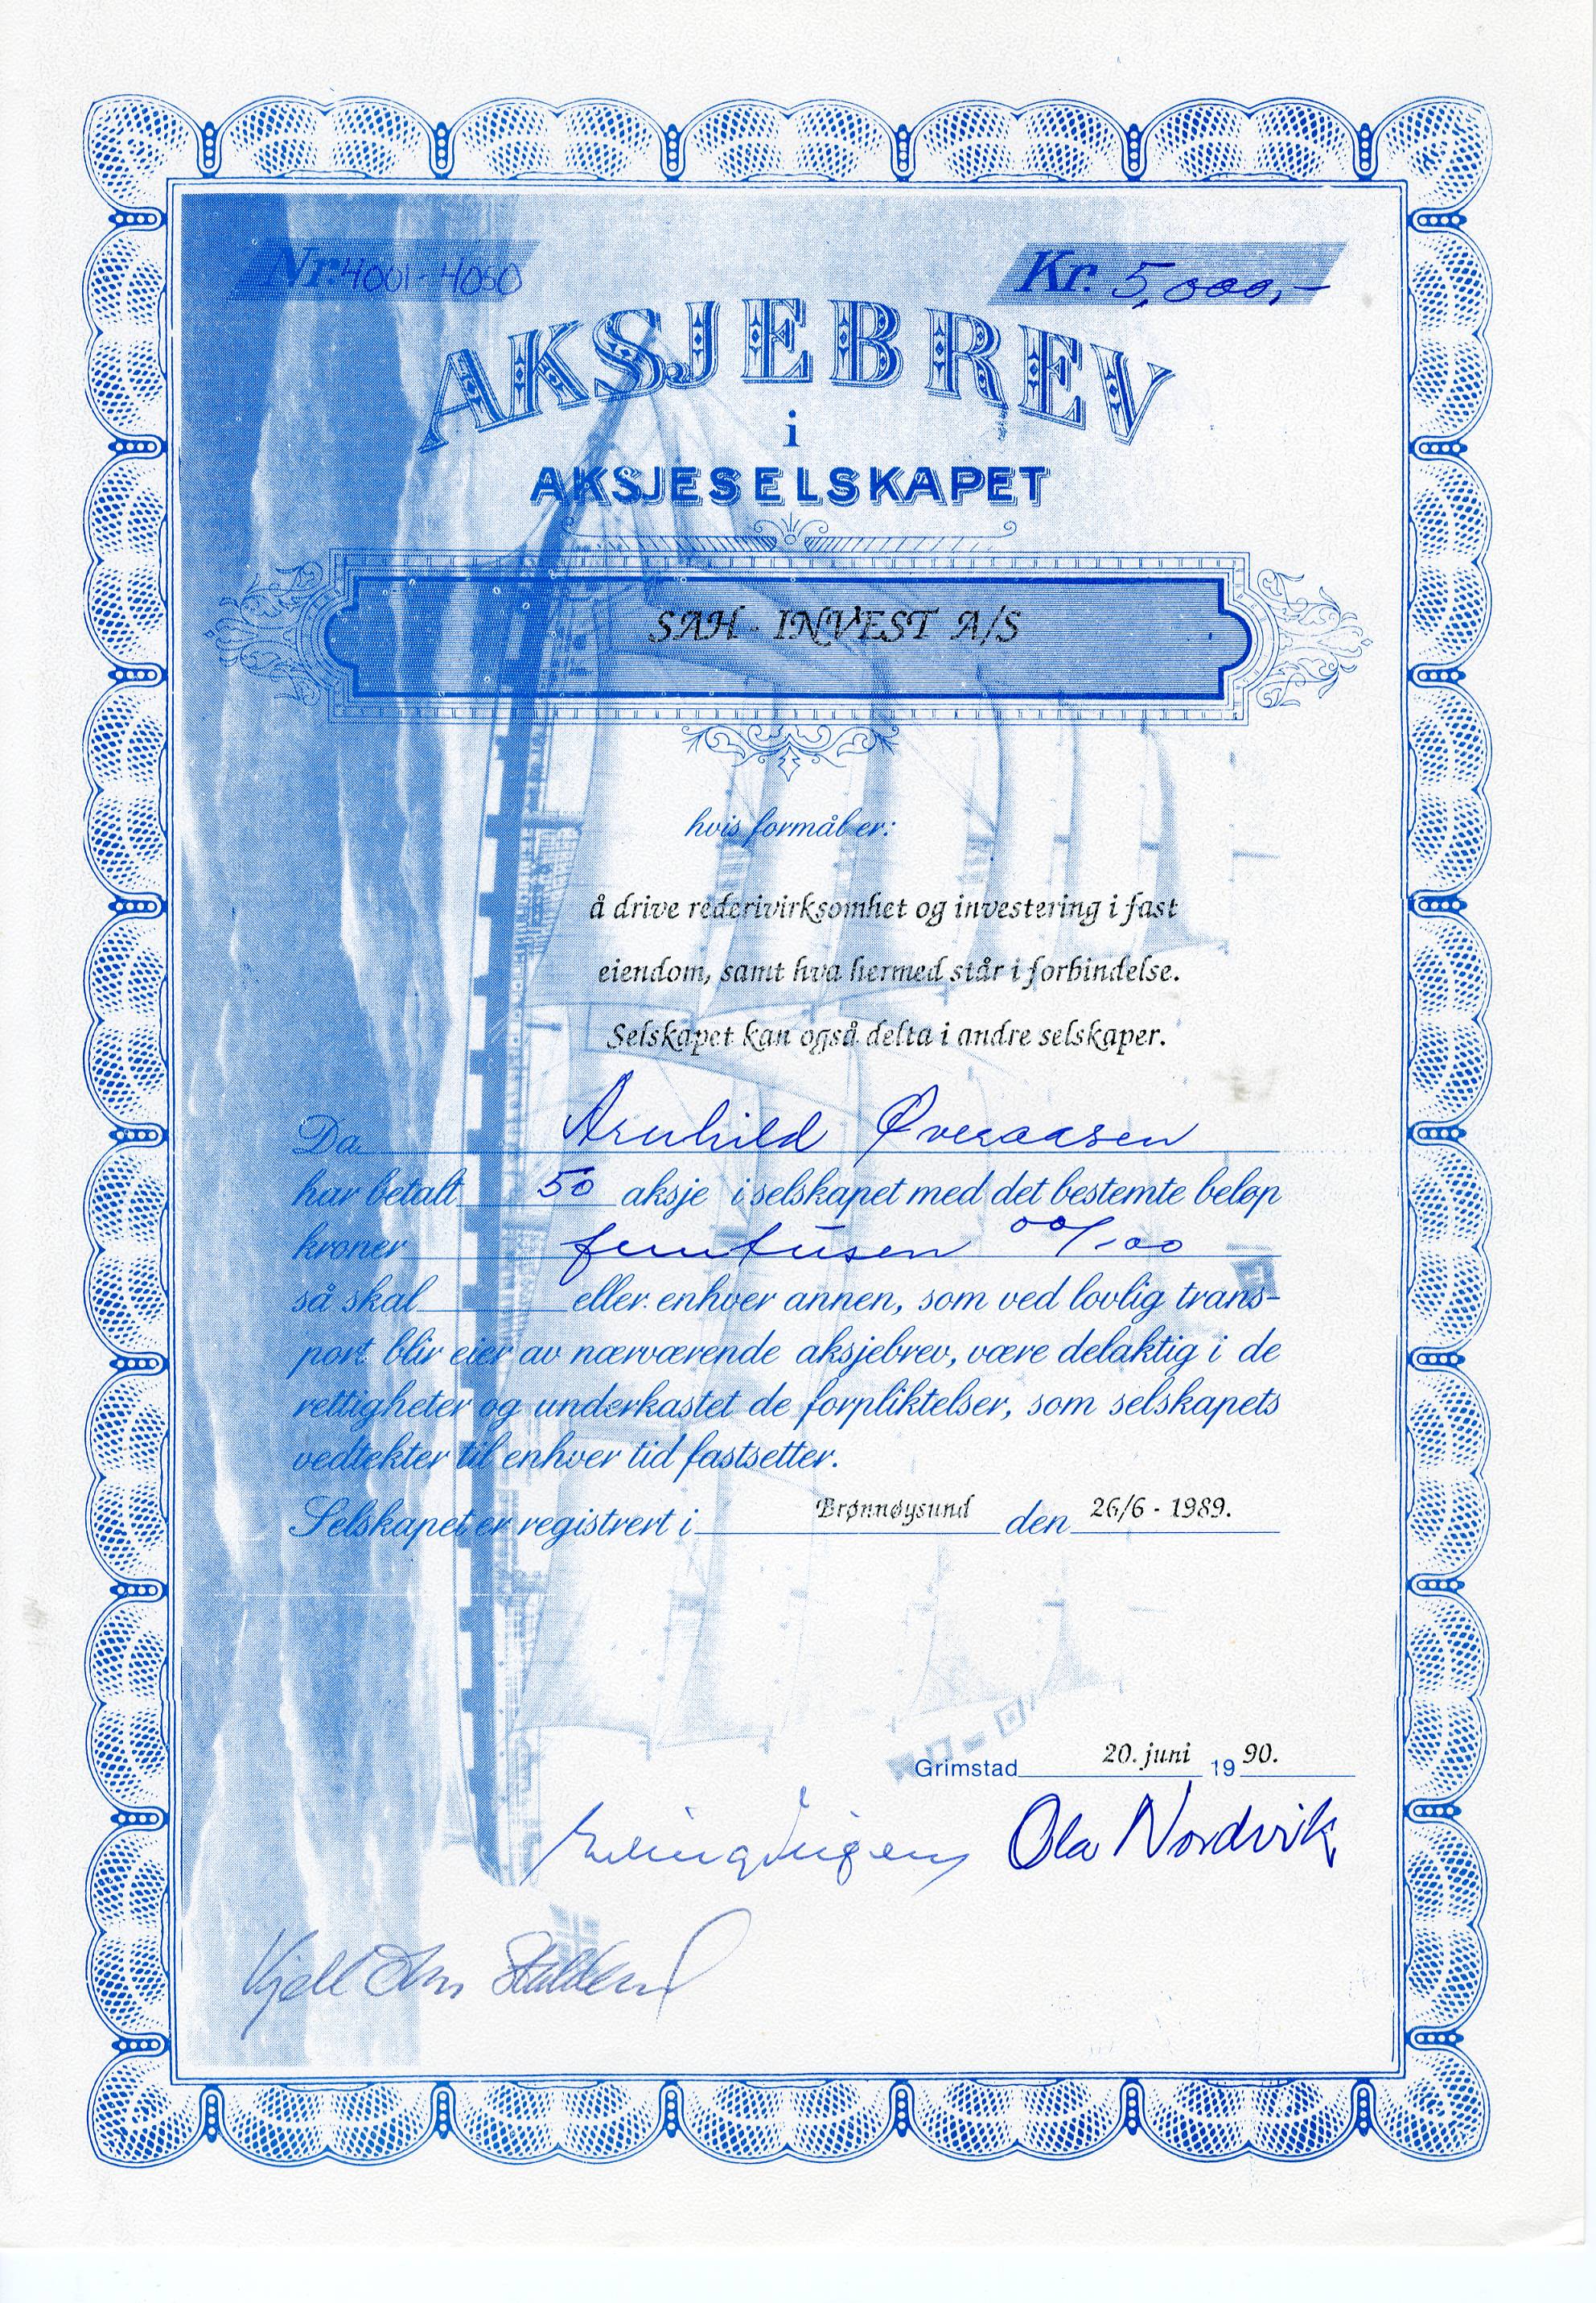 Nr. 4001-4050
Kr. 5,000,-
AKSJEBREV
i
AKSJESELSKAPET
SAH - INVEST A/S
hvis formål er:
å drive rederivirksomhet og investering i fast
eiendom, samt hva hermed står i forbindelse.
Selskapet kan også delta i andre selskaper.
Da Arnhild Øveraasen
har betalt 50 aksje i selskapet med det bestemte beløp
kroner femtusen 00/100
så skal eller enhver annen, som ved lovlig trans-
port blir eier av nærværende aksjebrev, være delaktig i de
rettigheter og underkastet de forpliktelser, som selskapets
vedtekter til enhver tid fastsetter.
Selskapet er registrert i Brønnøysund den 26/6 - 1989.
Grimstad 20. juni 1990.
Ola Nordvik
Kjell